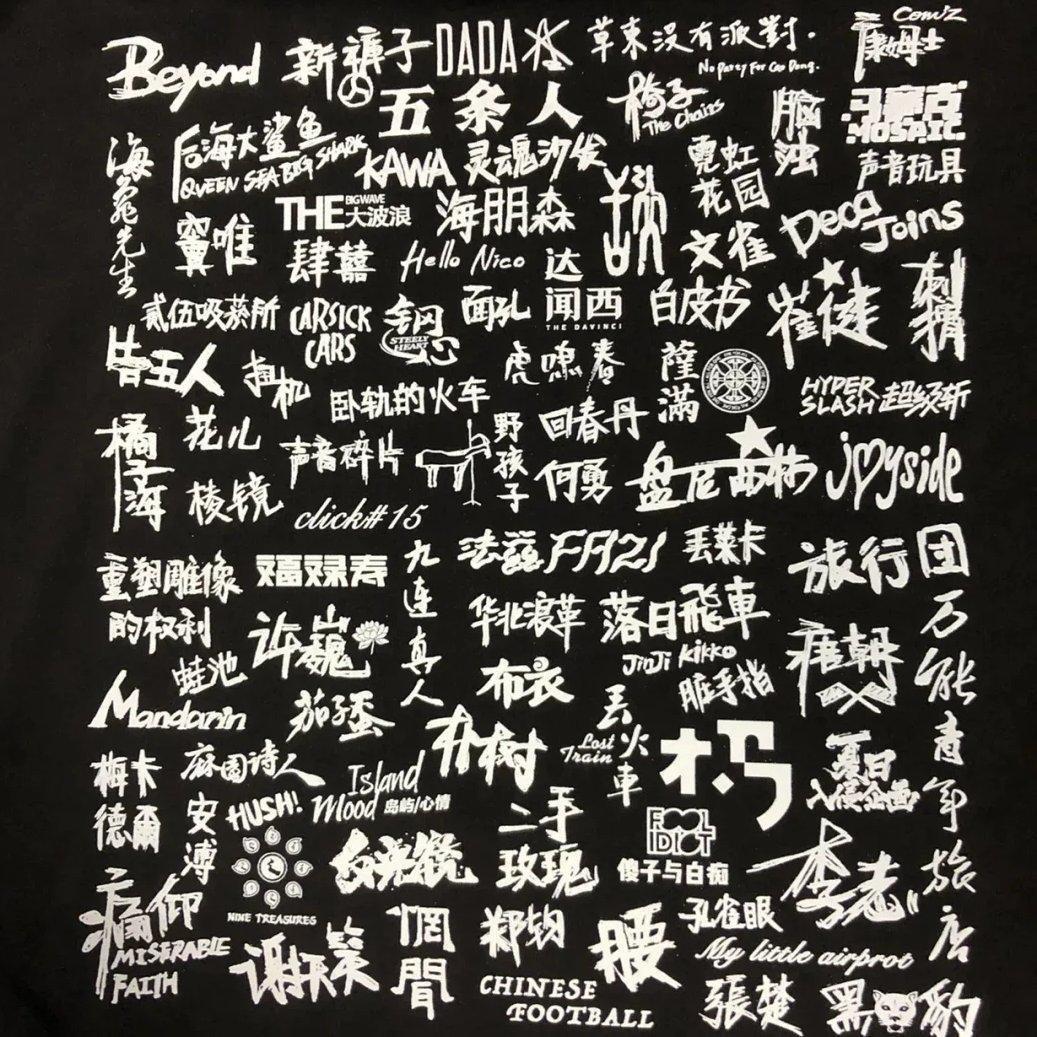 Beyond
新裤子
DADA
草東没有派對.
No Party For Cao Dong.
Com'Z
康姆士
五条人
椅子
The Chairs
脑浊
马赛克
MOSAIC
海龟先生
后海大鲨鱼
QUEEN SEA BIG SHARK
KAWA
灵魂沙发
霓虹花园
声音玩具
THE
BIGWAVE
大波浪
海朋森
窦唯
肆囍
Hello Nico
文雀
Deca Joins
达闻西
THE DAVINCI
白皮书
崔健
刺猬
贰伍吸蒸所
CARSICK CARS
钢心
STEELY HEART
面孔
告五人
扭机
卧轨的火车
虎啸春
薩滿
HYPER SLASH
超级斩
橘子海
花儿
声音碎片
野孩子
回春丹
何勇
盘尼西林
joyside
棱镜
click#15
重塑雕像的权利
福禄寿
九连真人
法兹FAZI
丢莱卡
旅行团
华北浪革
落日飛車
万能青年旅店
许巍
Jinji kikko
唐朝
蛙池
布衣
脏手指
Mandarin
茄子蛋
朴树
丢火車
Lost Train
木马
夏日入侵企画
梅卡德爾
麻园诗人
Island Mood
岛屿/心情
安溥
HUSH!
二手玫瑰
FOOL IDIOT
傻子与白痴
NINE TREASURES
反光镜
李志
痛仰
MISERABLE FAITH
谢天笑
罔聞
郑钧
腰
孔雀眼
My little airprot
CHINESE FOOTBALL
張楚
黑豹